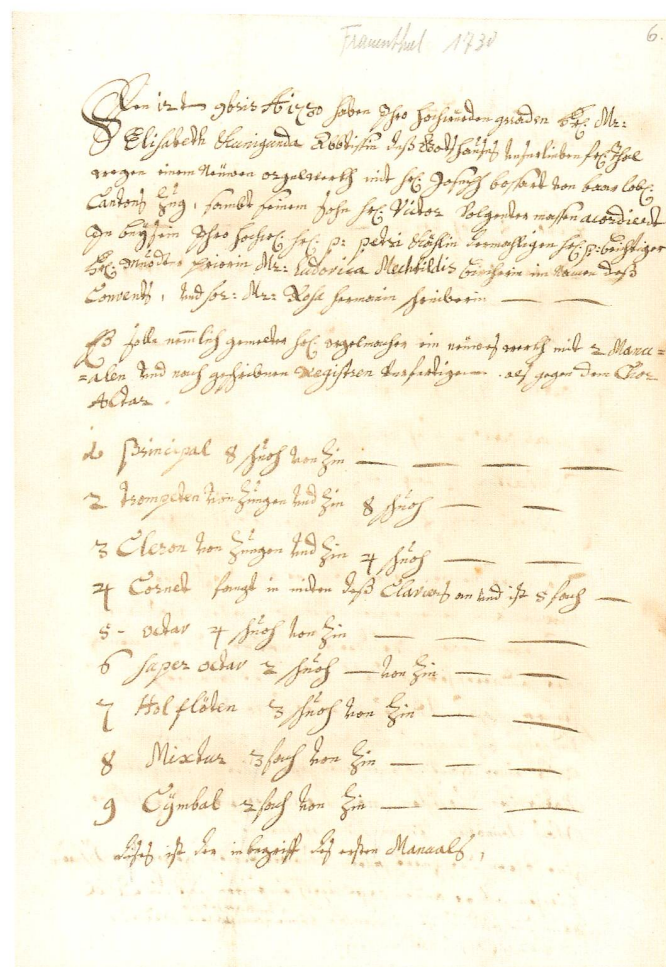 Frauenthal 1730
6.
Den 12t 9bris Ao 1730 haben Ihro hochwürden gnaden Fr: Mr:
Elisabeth Kunigunda Abbtissin deß Gottshauses
wegen einem Neüwen orgelwerch mit hr: Joseph bosart von baar lobl:
Cantons Zug, sambt seinem sohn hr: Victor Volgender massen acordiert
In beysein Ihro hochw: hr: p: petri dermahligen hr: p: beichtiger
Fr: Muoter priorin Mr: Ludovica Mechtildis im Namen deß
Convents, und Mr: Rosa schreiberin — —
Eß solle nemlich gemelter hr: orgelmacher ein neüwes werch mit 2 Manu=
=alen und nach geschribnen Registren verfertigen als gegen dem Chor
Altar.
1 Principal 8 schuoh von Zin — — — —
2 trompeten von Zungen und Zin 8 schuoh — —
3 Cleron von Zungen und Zin 4 schuoh — —
4 Cornet fangt in miten deß Claviers an und ist 5 fach —
5 - octav 4 schuoh von Zin — — —
6 super octav 2 schuoh — von Zin — —
7 Hol flöten 3 schuoh von Zin — —
8 Mixtur 3 fach von Zin — — —
9 Cymbal 2 fach von Zin — — —
dises ist der inbegriff des ersten Manuals,